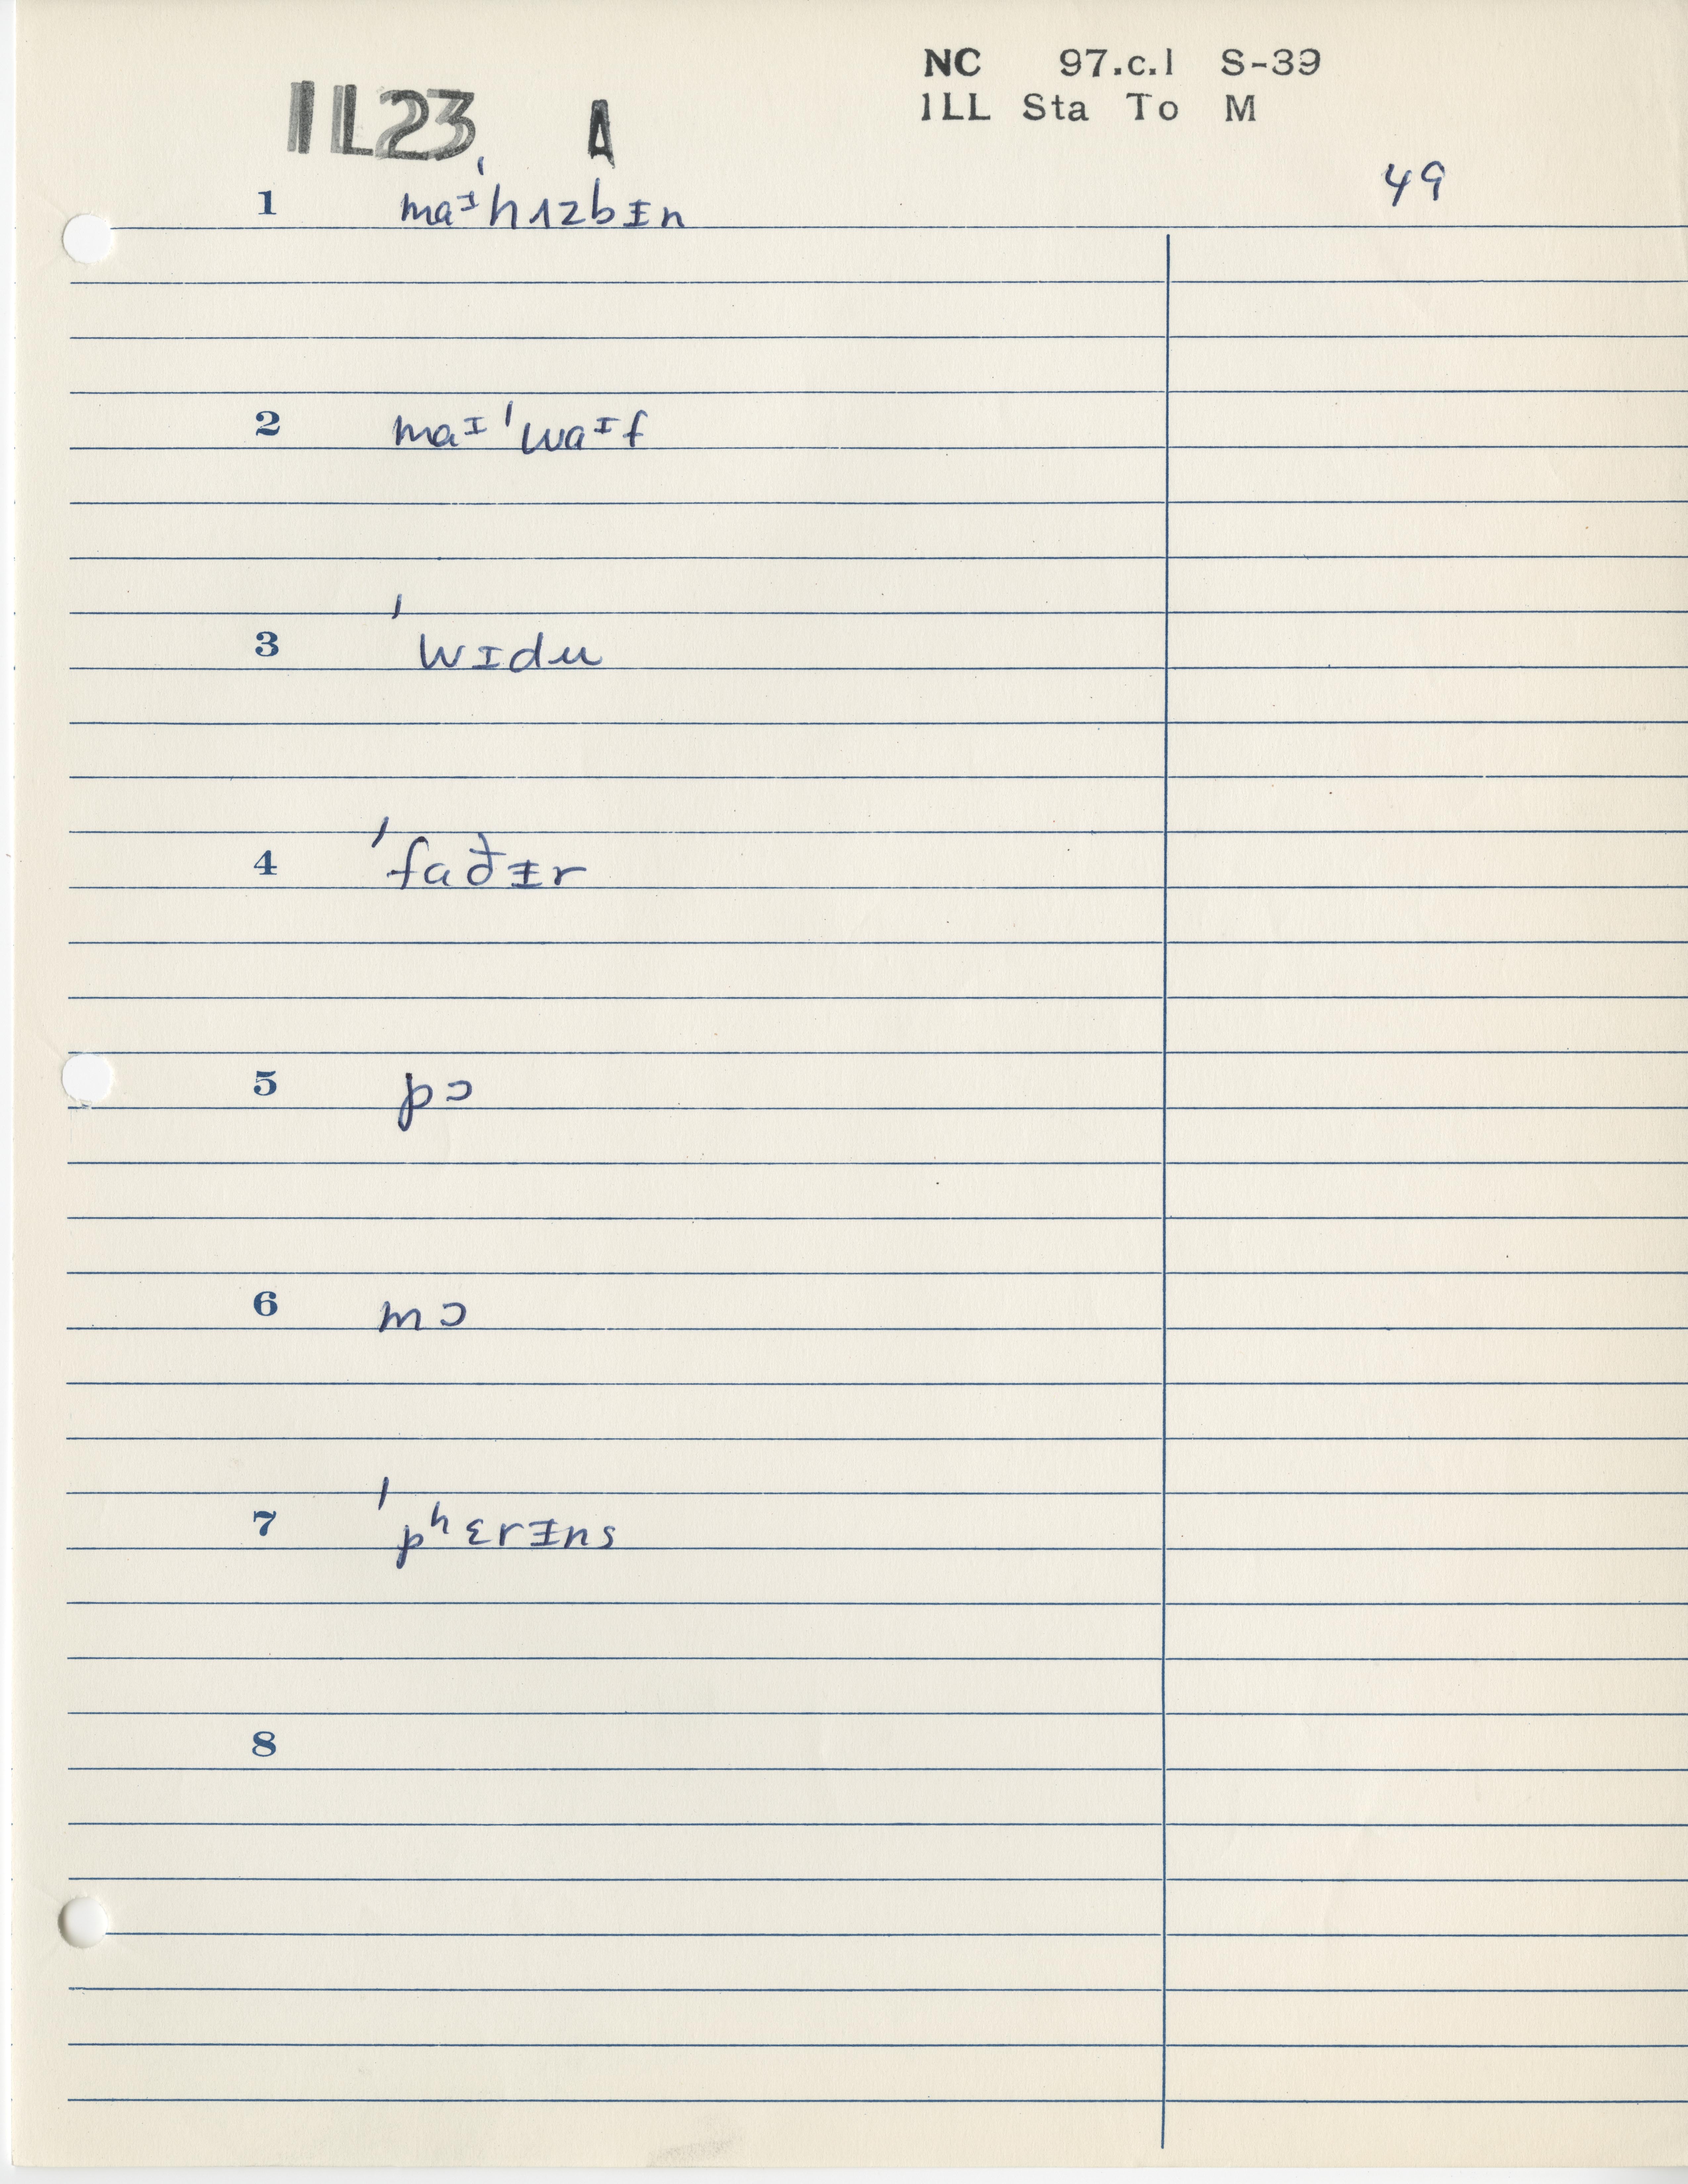 NC 97.c.1 S-39
ILL Sta To M
IL23 A
49
1 maᶦˈhʌzbɪ̵n
2 maᶦˈwaᶦf
3 ˈwɪdu
4 ˈfaðɪ̵r
5 pɔ
6 mɔ
7 ˈpʰɛrɪ̵ns
8